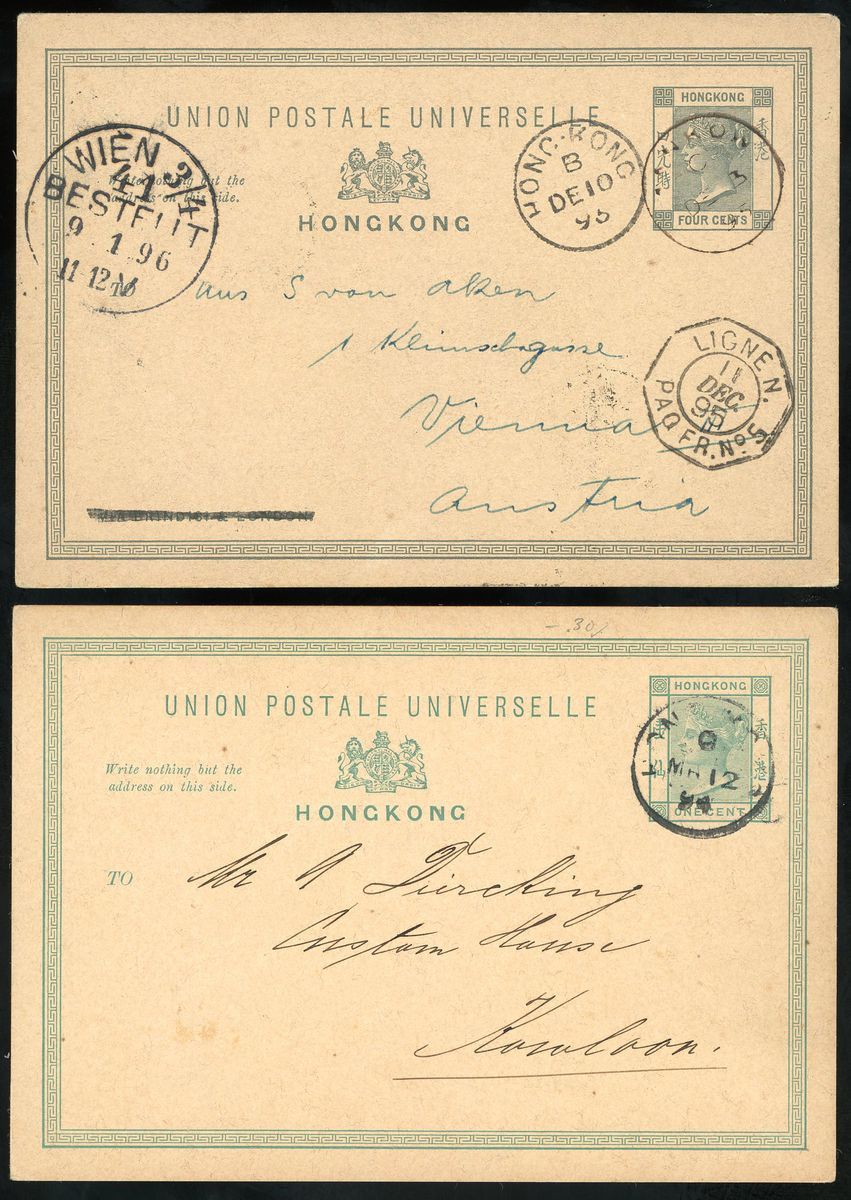 UNION POSTALE UNIVERSELLE
HONGKONG
香港
四先特
FOUR CENTS
Write nothing but the
address on this side.
HONGKONG
WIEN 2/4
41
BESTELLT
9 1 96
11-12 V
HONG-KONG
B
DE 10
95
C
TO
von Aken
1
Vienna
Austria
LIGNE N.
11
DEC.
95
PAQ. FR. No 5
VIA BRINDISI & LONDON
- .30
UNION POSTALE UNIVERSELLE
HONGKONG
香港
ONE CENT
Write nothing but the
address on this side.
HONGKONG
MR 12
94
TO
Mr A Dürcking
Custom House
Kowloon.